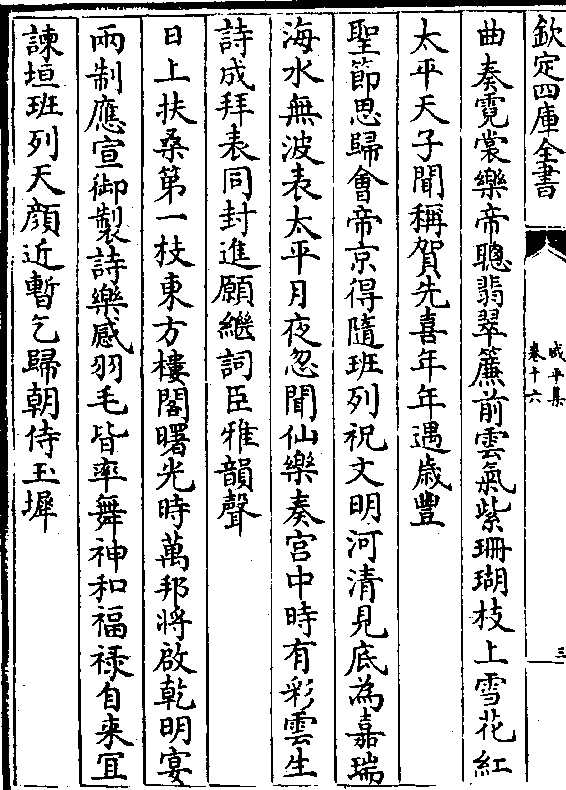 欽定四庫全書
咸平集
卷十六
三
曲奏霓裳樂帝聰翡翠簾前雲氣紫珊瑚枝上雪花紅
太平天子聞稱賀先喜年年遇歲豐
聖節思歸會帝京得隨班列祝文明河清見底為嘉瑞
海水無波表太平月夜忽聞仙樂奏宮中時有彩雲生
詩成拜表同封進願繼詞臣雅韻聲
日上扶桑第一枝東方樓閣曙光時萬邦將啟乾明宴
兩制應宣御製詩樂感羽毛皆率舞神和福祿自来宜
諫垣班列天顔近暫乞歸朝侍玉墀